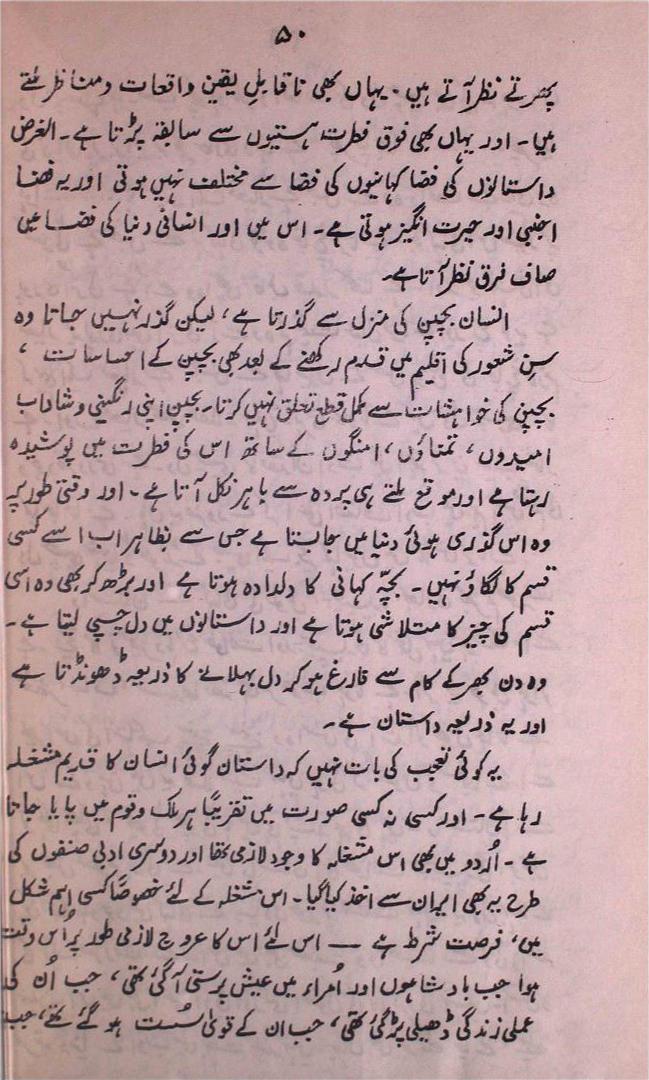 ۵۰
پھرتے نظر آتے ہیں۔ یہاں بھی ناقابلِ یقین واقعات و مناظر ملتے
ہیں۔ اور یہاں بھی فوق فطرت ہستیوں سے سابقہ پڑتا ہے۔ الغرض
داستانوں کی فضا کہانیوں کی فضا سے مختلف نہیں ہوتی اور یہ فضا
اجنبی اور حیرت انگیز ہوتی ہے۔ اس میں اور انسانی دنیا کی فضا میں
صاف فرق نظر آتا ہے۔
انسان بچپن کی منزل سے گذرتا ہے، لیکن گذر نہیں جاتا وہ
سنِ شعور کی اقلیم میں قدم رکھنے کے بعد بھی بچپن کے احساسات،
بچپنی کی خواہشات سے مکمل قطع تعلق نہیں کرتا۔ بچپن اپنی رنگینی و شاداب
امیدوں، تمناؤں، امنگوں کے ساتھ اس کی فطرت میں پوشیدہ
رہتا ہے اور موقع ملتے ہی پردہ سے باہر نکل آتا ہے۔ اور وقتی طور پر
وہ اس گذری ہوئی دنیا میں جا بستا ہے جس سے بظاہر اب اسے کسی
قسم کا لگاؤ نہیں۔ بچّہ کہانی کا دلدادہ ہوتا ہے اور بڑھ کر بھی وہ اسی
قسم کی چیز کا متلاشی ہوتا ہے اور داستانوں میں دل چسپی لیتا ہے۔
وہ دن بھر کے کام سے فارغ ہو کر دل بہلانے کا ذریعہ ڈھونڈتا ہے
اور یہ ذریعہ داستان ہے۔
یہ کوئی تعجب کی بات نہیں کہ داستان گوئی انسان کا قدیم مشغلہ
رہا ہے۔ اور کسی نہ کسی صورت میں تقریباً ہر ملک و قوم میں پایا جاتا
ہے۔ اُردو میں بھی اس مشغلہ کا وجود لازمی تھا اور دوسری ادبی صنفوں کی
طرح یہ بھی ایران سے اخذ کیا گیا۔ اس مشغلہ کے لئے خصوصاً کسی اہم شکل
میں، فرصت شرط ہے — اس لئے اس کا عروج لازمی طور پر اُس وقت
ہوا جب بادشاہوں اور اُمراء میں عیش پرستی آ گئی تھی، جب اُن کی
عملی زندگی ڈھیلی پڑ گئی تھی، جب ان کے قویٰ سُست ہو گئے تھے، جب